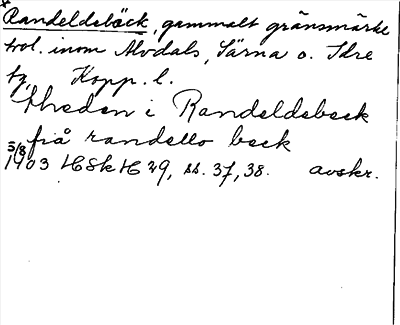 *Randeldsbäck, gammalt gränsmärke
trol. inom Älvdals, Särna o. Idre
tg, Kopp. l.
Theden i Randeldebeck
frå randello beck
5/8 1403 HSkH 29, ss. 37, 38. avskr.